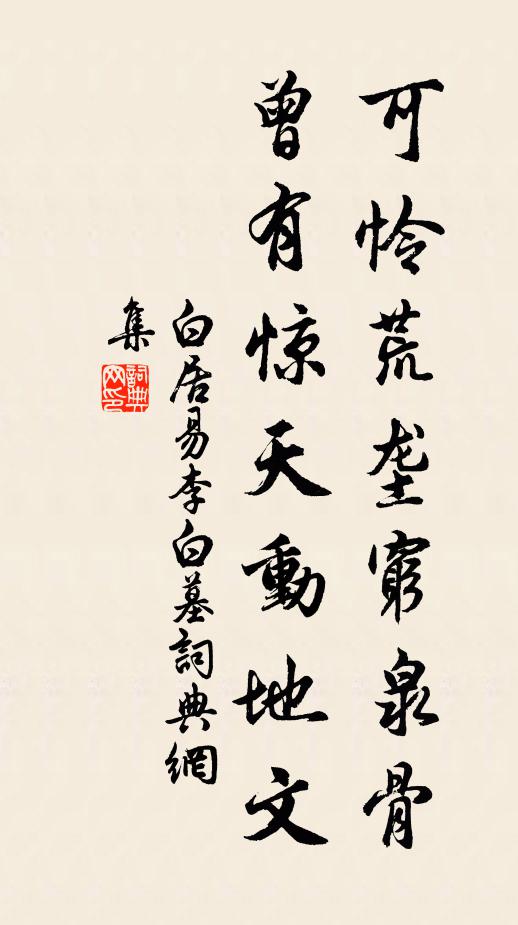 可怜荒垄窮泉骨
曾有惊天動地文
白居易李白墓詞典網
集
詞典网印